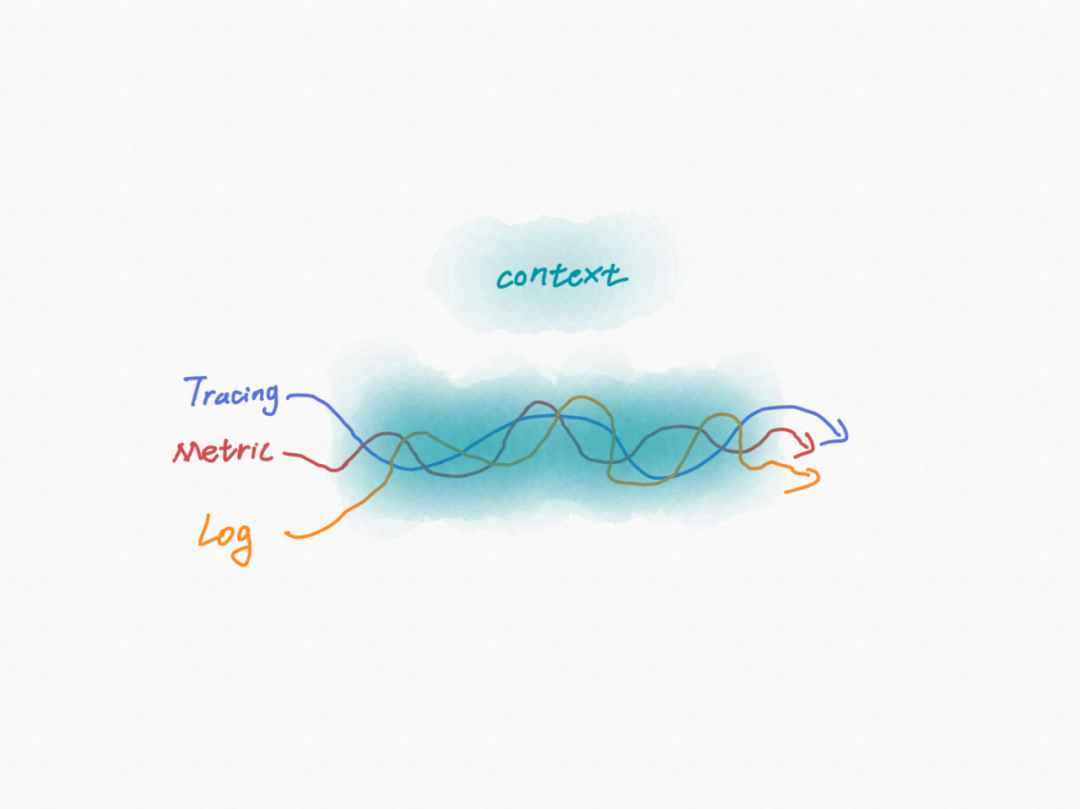 context
Tracing
Metric
Log